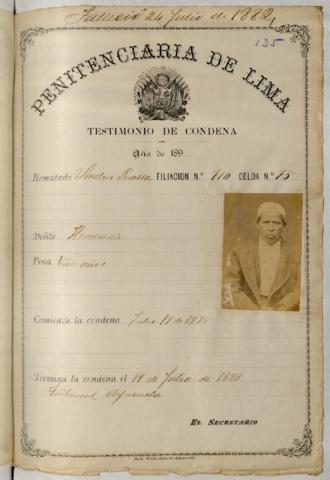 Falleció 24 Julio de 1882
135
PENITENCIARIA DE LIMA
TESTIMONIO DE CONDENA
Año de 189
Rematado Andres FILIACION N.º 710 CELDA N.º 15
Delito Homicidio
Pena años
Comienza la condena Julio 19 de 1875
Termina la condena el 19 de Julio de 1888
Tribunal
EL SECRETARIO